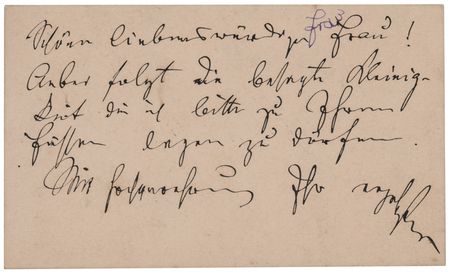 Schöne liebenswürdige Frau Frau!
Anbei folgt die besagte Kleinig-
keit die ich bitte zu Ihren
Füssen legen zu dürfen.
Mit Hochachtung Ihr